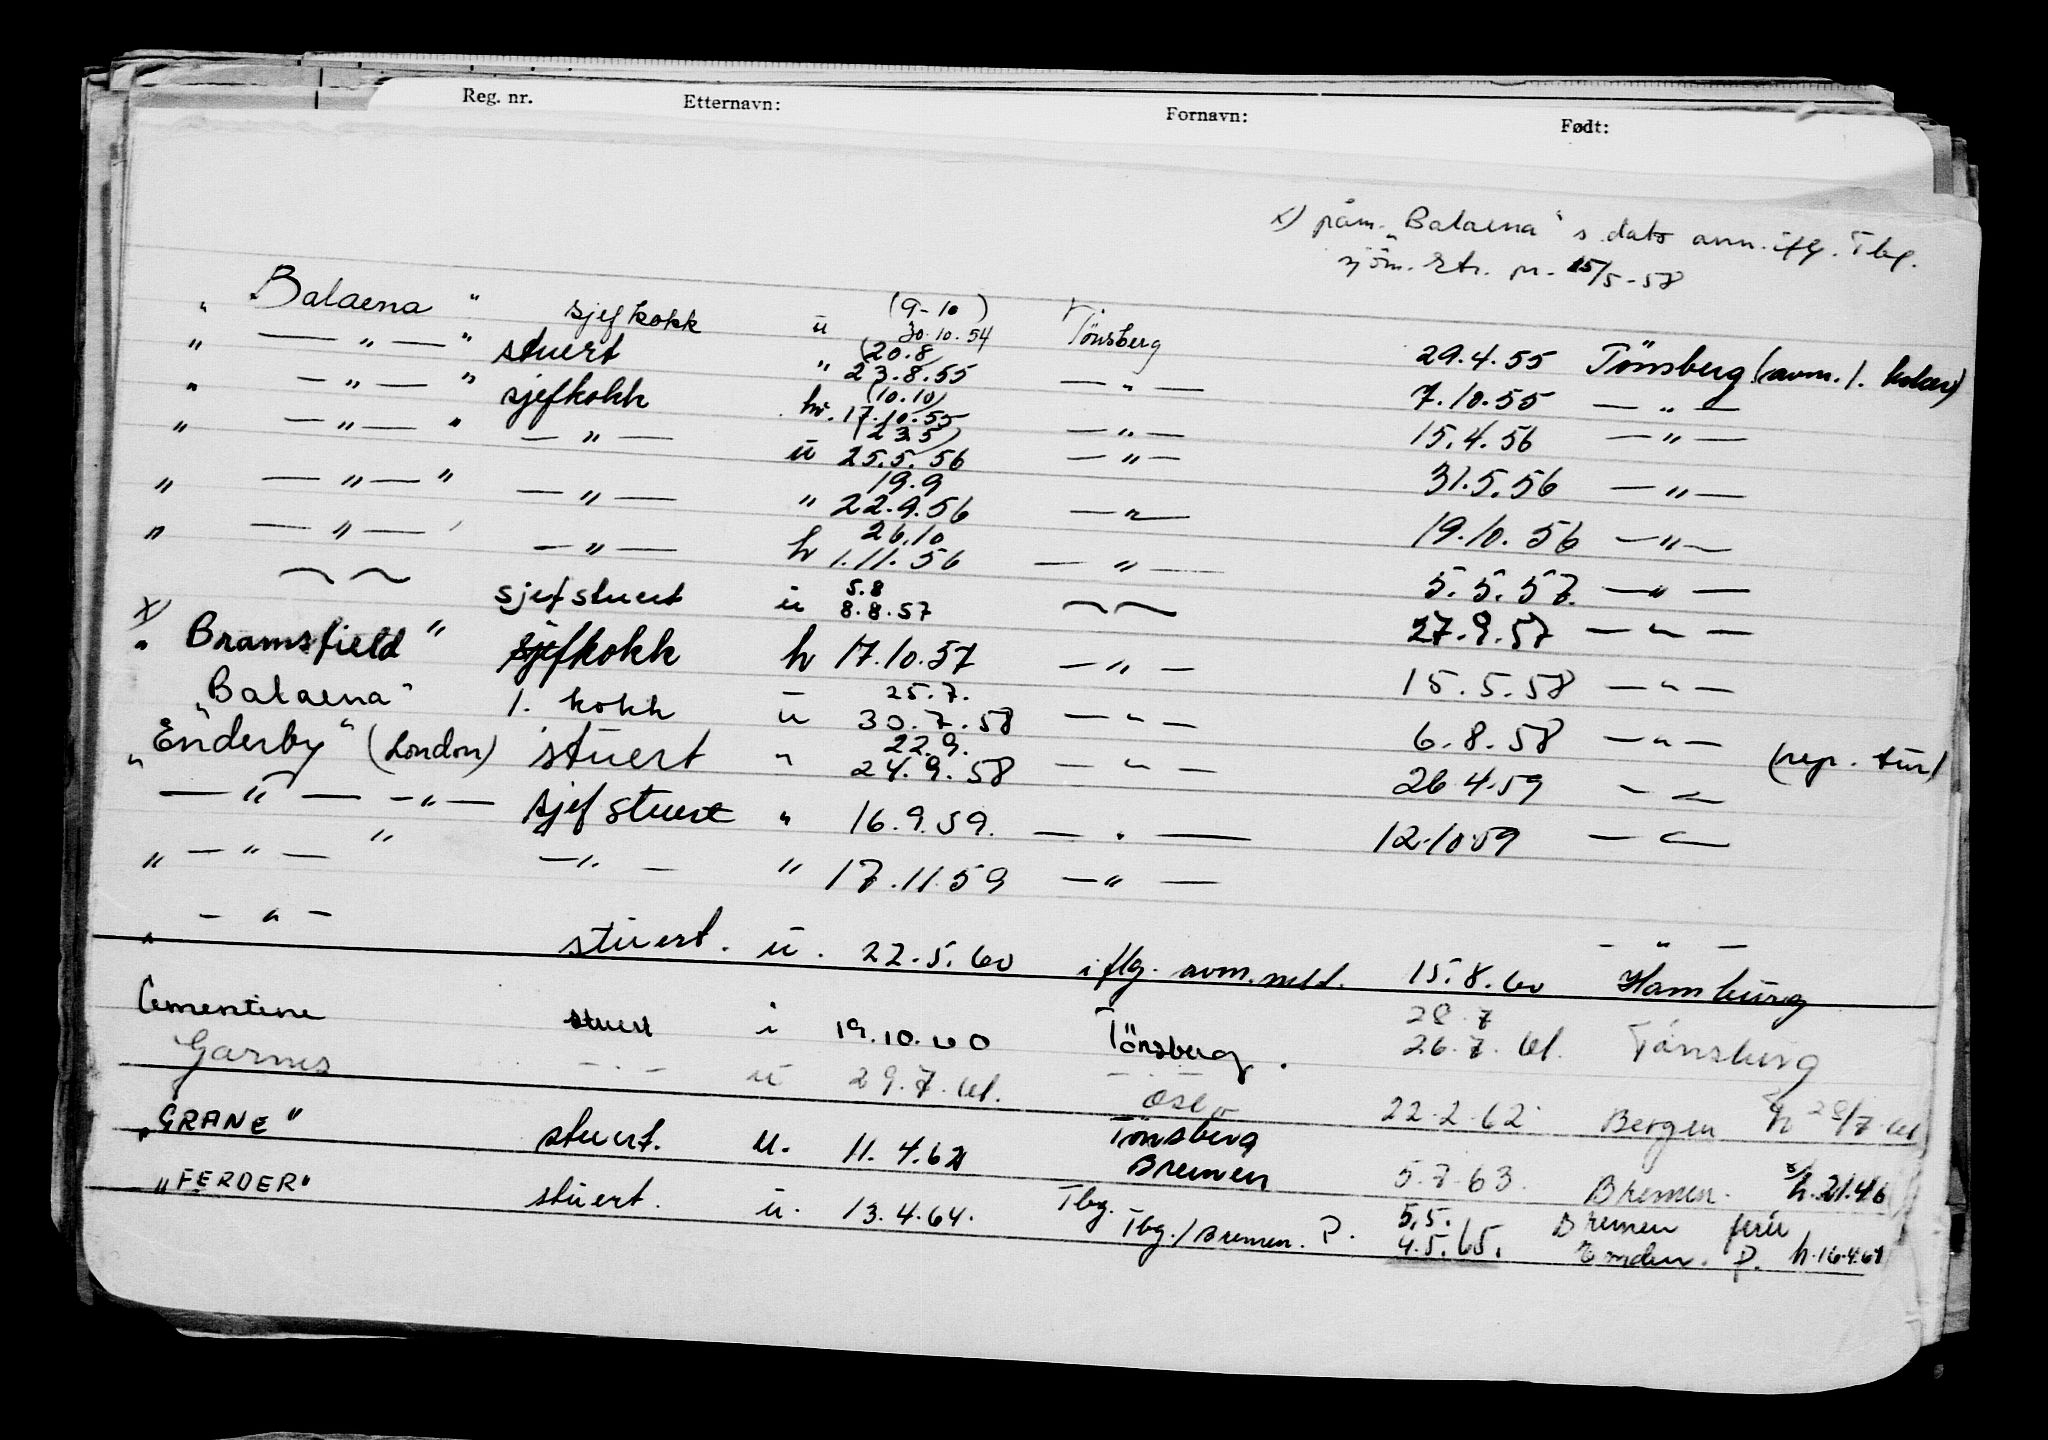 Reg. nr. Etternavn: Fornavn: Født:
x) påm. "Balaena" s. dato avm. iflg. Tbg.
sjöm. ktr. pr. 15/5-58
" Balaena " sjefkokk u (9-10) 30.10.54 Tönsberg 29.4.55 Tönsberg (avm.
" — " — " stuert " (20.8) 23.8.55 — " — 7.10.55 — " —
" — " — " sjefkokk hv. (10.10) 17.10.55 — " — 15.4.56 — " —
" — " — " — " — u (23.5) 25.5.56 — " — 31.5.56 — " —
" — " — " — " — " 19.9 22.9.56 — " — 19.10.56 — " —
" — " — — " — h 26.10 1.11.56 — " — 5.5.57. — " —
sjefstuert u 5.8 8.8.57 27.9.57 — " —
x)
" Bramsfield " sjefkokk h 17.10.57 — " — 15.5.58 — " —
"Balaena" 1. kokk u 25.7. 30.7.58 — " — 6.8.58 — " — (rep. tur)
"Enderby" (London) stuert " 22.9. 24.9.58 — " — 26.4.59 — " —
— " — — " — sjefstuert " 16.9.59. — " — 12.10.59 — " —
" — " — " — " — " 17.11.59 — " —
" — " — stuert. u. 22.5.60 iflg. avm. meld. 15.8.60 — " — Hamburg
Cementine stuert i 19.10.60 Tönsberg. 28.7 26.7.61. Tönsberg
Garnes — " — u 29.7.61. Oslo 22.2.62 Bergen h 28/7.61
"GRANE" stuert. u. 11.4.62 Tönsberg Bremen 5.7.63. Bremen. h. 21.4.6
"FERDER" stuert. u. 13.4.64. Tbg. Tbg./Bremen. P. 5.5. 4.5.65. Bremen ferie Emden. P. h. 16.4.64